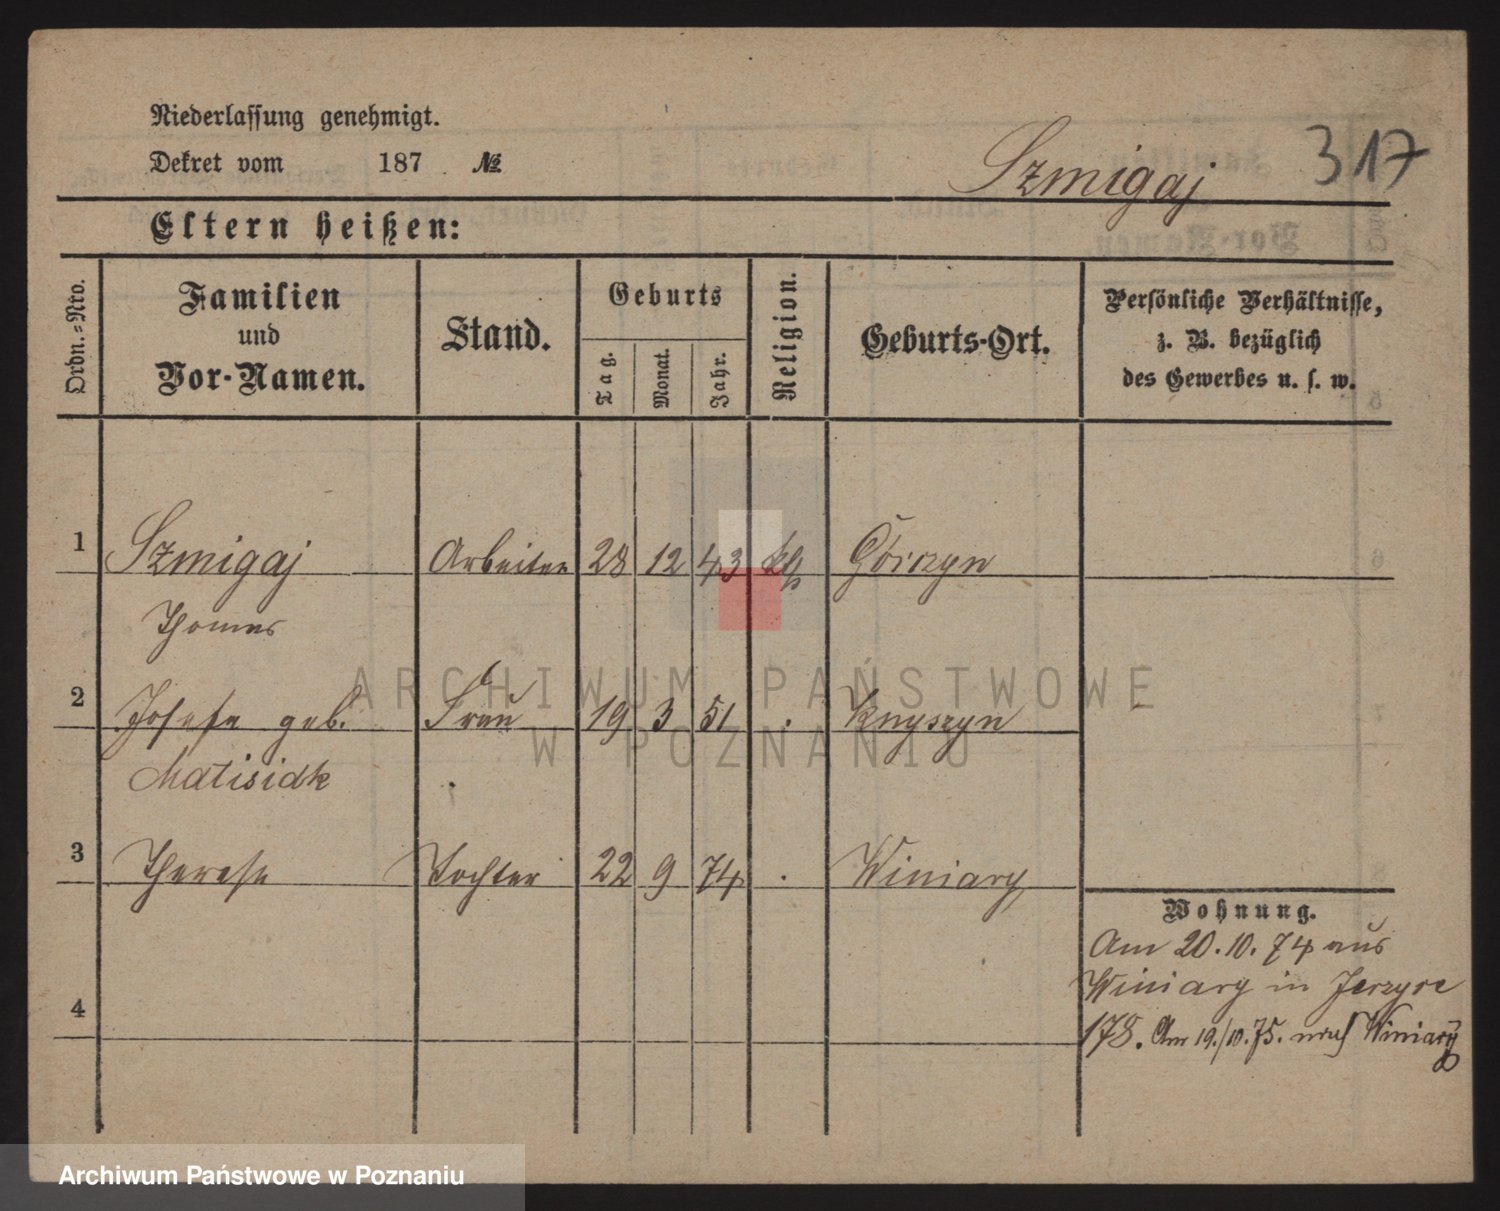 Niederlassung genehmigt.
Dekret vom 187 №
Szmigaj 317
Eltern heißen:
Ordn.-Nro. Familien und Vor-Namen. Stand. Geburts Tag. Monat. Jahr. Religion. Geburts-Ort. Persönliche Verhältnisse, z. B. bezüglich des Gewerbes u. s. w.
1 Szmigaj Arbeiter 28 12 43 kg Górczyn
Thomas
2 Josefa geb. Frau 19 3 51 . Knyszyn
Matisiak
3 Therese Tochter 22 9 74 . Winiary
Wohnung.
Am 20.10.74 aus
Winiary in Jerzyce
4
178. Am 19./10.75. nach Winiary
ARCHIWUM PAŃSTWOWE
W POZNANIU
Archiwum Państwowe w Poznaniu